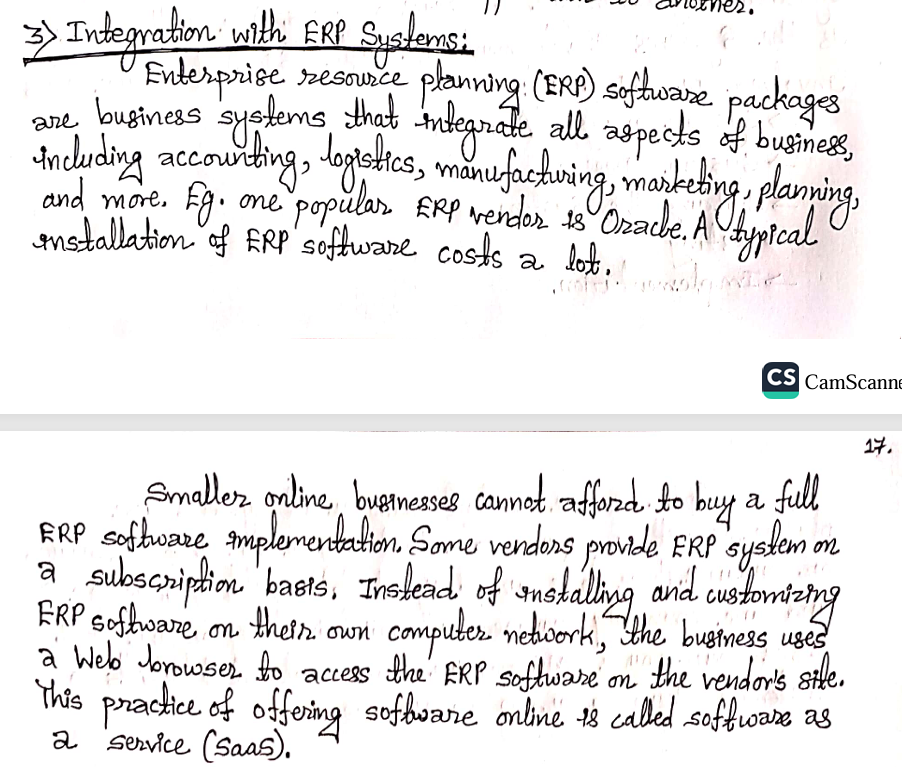 another.
3) Integration with ERP Systems:
Enterprise resource planning (ERP) software packages
are business systems that integrate all aspects of business,
including accounting, logistics, manufacturing, marketing, planning,
and more. Eg. one popular ERP vendor is Oracle. A typical
installation of ERP software costs a lot.
CS CamScanne
17.
Smaller online businesses cannot afford to buy a full
ERP software implementation. Some vendors provide ERP system on
a subscription basis. Instead of installing and customizing
ERP software on their own computer network, the business uses
a Web browser to access the ERP software on the vendor's site.
This practice of offering software online is called software as
a service (SaaS).